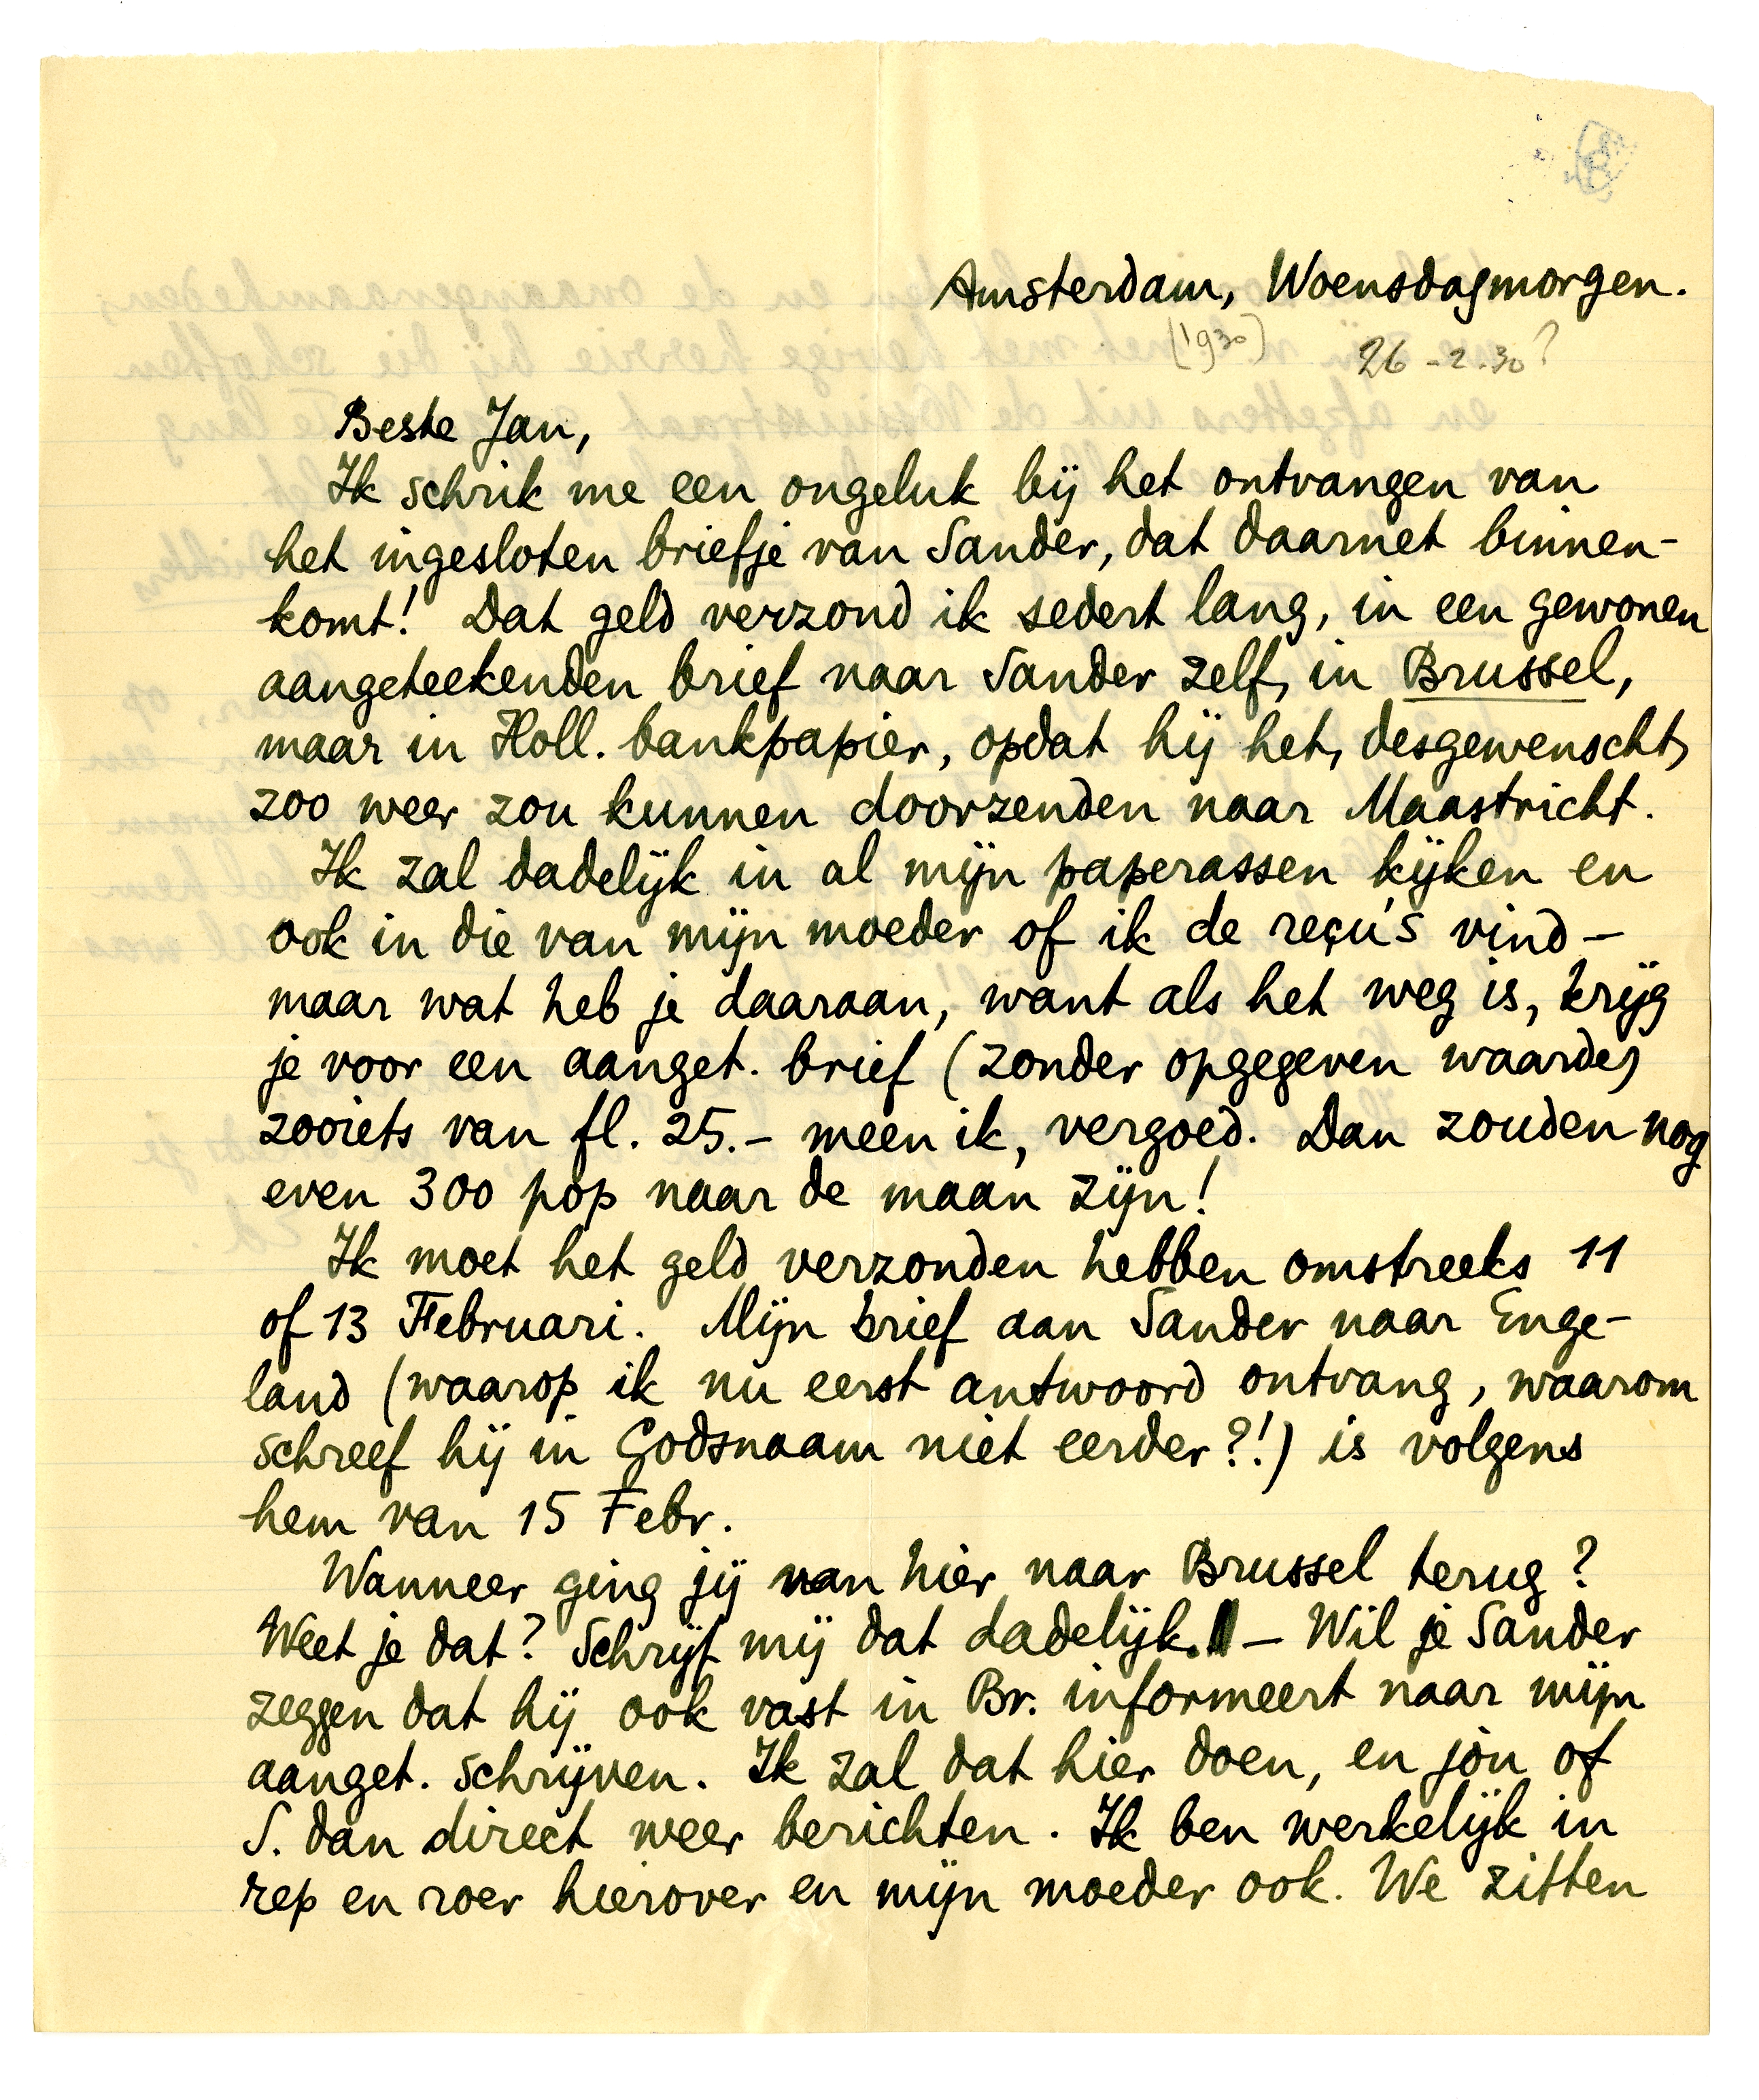 Amsterdam, Woensdagmorgen.
(1930) 26-2.30?
Beste Jan,
Ik schrik me een ongeluk bij het ontvangen van
het ingesloten briefje van Sander, dat daarnet binnen-
komt! Dat geld verzond ik sedert lang, in een gewonen
aangeteekenden brief naar Sander zelf, in Brussel,
maar in Holl. bankpapier, opdat hij het, desgewenscht,
zoo weer zou kunnen doorzenden naar Maastricht.
Ik zal dadelijk in al mijn paperassen kijken en
ook in die van mijn moeder of ik de reçu's vind –
maar wat heb je daaraan, want als het weg is, krijg
je voor een aanget. brief (zonder opgegeven waarde)
zooiets van fl. 25.– meen ik, vergoed. Dan zouden nog
even 300 pop naar de maan zijn!
Ik moet het geld verzonden hebben omstreeks 11
of 13 Februari. Mijn brief aan Sander naar Enge-
land (waarop ik nu eerst antwoord ontvang, waarom
schreef hij in Godsnaam niet eerder?!) is volgens
hem van 15 Febr.
Wanneer ging jij van hier naar Brussel terug?
Weet je dat? Schrijf mij dat dadelijk. – Wil je Sander
zeggen dat hij ook vast in Br. informeert naar mijn
aanget. schrijven. Ik zal dat hier doen, en jou of
S. dan direct weer berichten. Ik ben werkelijk in
rep en roer hierover en mijn moeder ook. We zitten